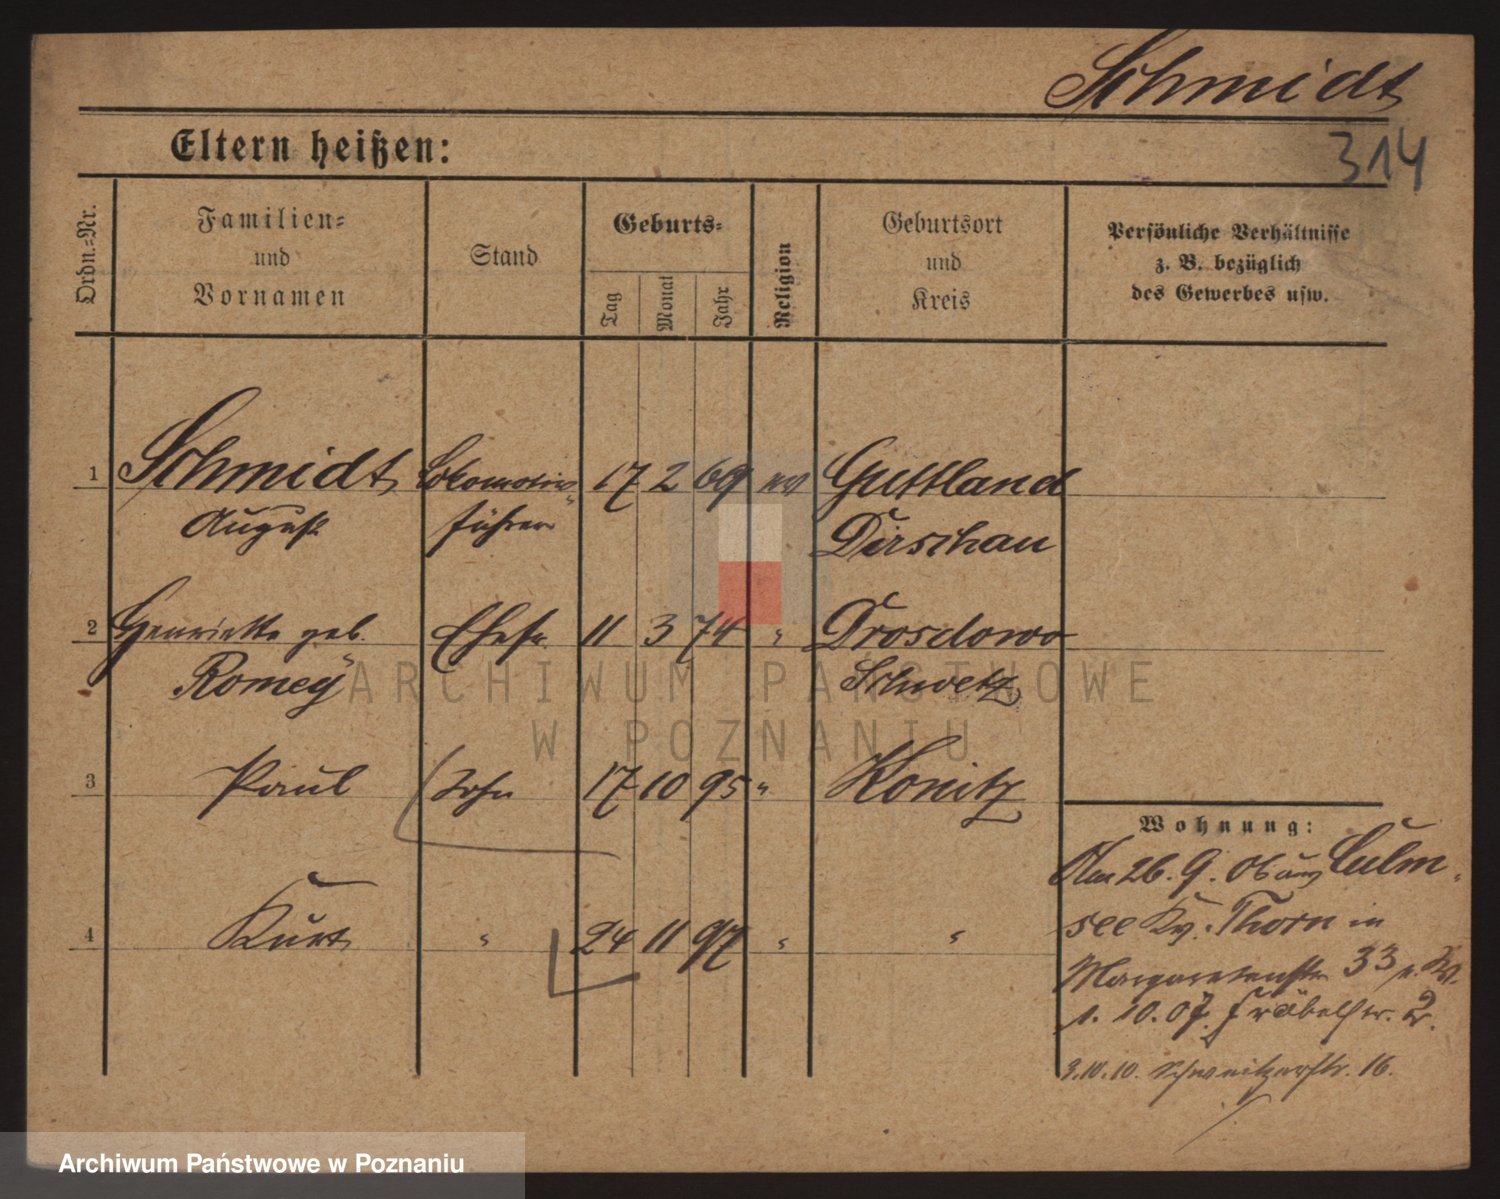 Schmidt
Eltern heißen:
314
Ordn.=Nr.
Familien=
und
Vornamen
Stand
Geburts=
Tag
Monat
Jahr
Religion
Geburtsort
und
Kreis
Persönliche Verhältnisse
z. B. bezüglich
des Gewerbes usw.
1 Schmidt Lokomotiv= 17 2 69 ev Guttland
August führer Dirschau
2 Henriette geb. Ehefr. 11 3 74 " Drosdowo
Romey Schwetz
3 Paul Sohn 17 10 95 " Konitz
4 Kurt " 24 11 97 " "
Wohnung:
Am 26. 9. 06 aus Culm-
see Kr. Thorn in
Margaretenstr 33
1. 10. 07. Fröbelstr. 2.
3.10.10. Schweitzerstr. 16.
ARCHIWUM PAŃSTWOWE
W POZNANIU
Archiwum Państwowe w Poznaniu